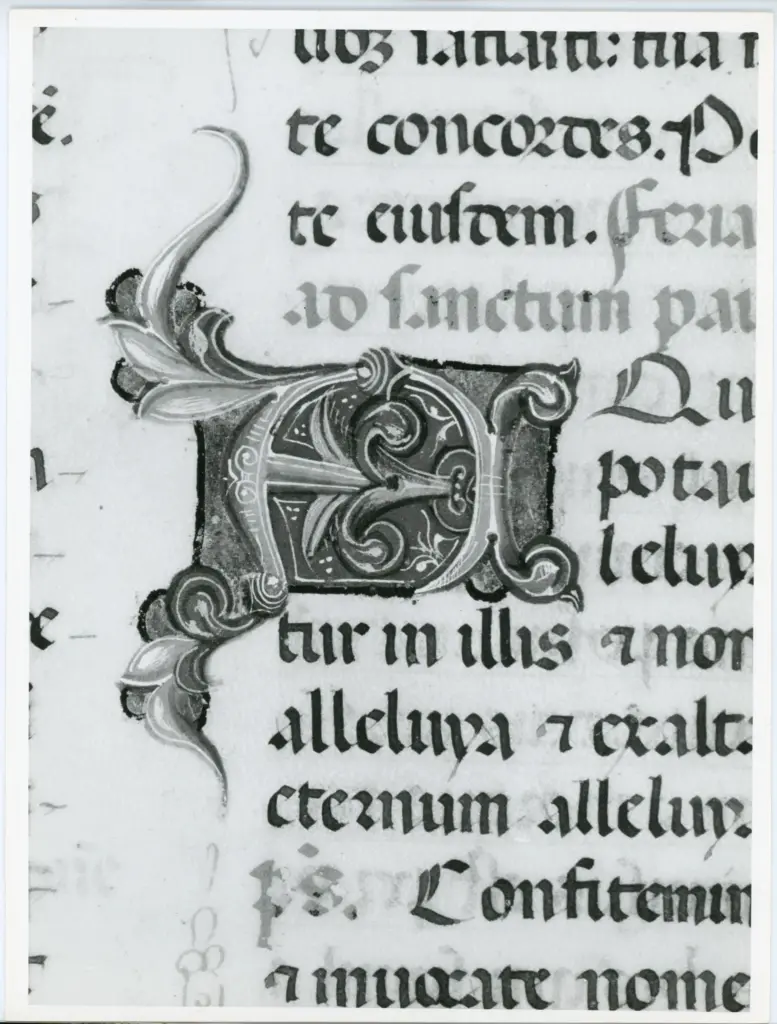 te concordes. Po
te eiusdem. Feria
ad sanctum pau
E Qui
potaui
leluya
tur in illis ⁊ non
alleluya ⁊ exalta
eternum alleluya
ps. Confitemini
⁊ inuocate nome